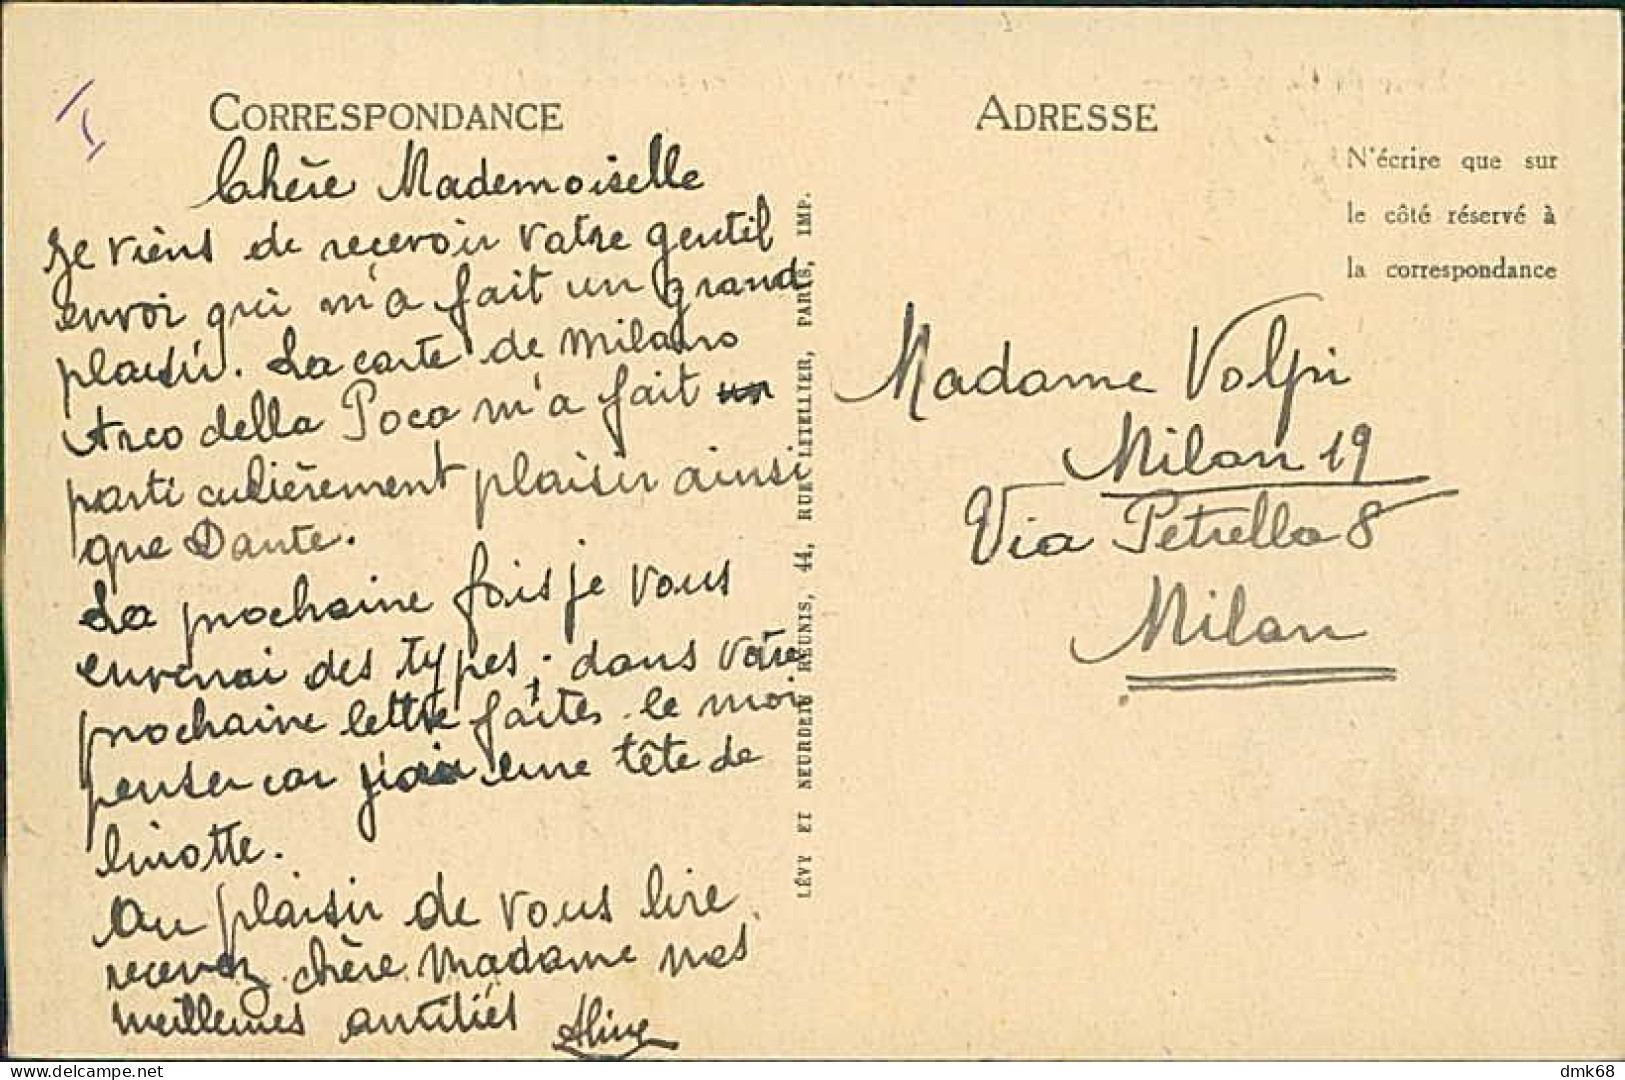 CORRESPONDANCE
Chère Mademoiselle
Je viens de recevoir votre gentil
envoi qui m'a fait un grand
plaisir. La carte de Milano
Arco della Poca m'a fait un
particulièrement plaisir ainsi
que Dante.
La prochaine fois je vous
enverrai des types ; dans votre
prochaine lettre faites le moi
penser car j'ai une tête de
linotte.
Au plaisir de vous lire
recevez chère Madame mes
meilleures amitiés Aline
LÉVY ET NEURDEIN RÉUNIS, 44, RUE LETELLIER, PARIS, IMP.
ADRESSE
N'écrire que sur
le côté réservé à
la correspondance
Madame Volpi
Milan 19
Via Petrella 8
Milan
delcampe.net
dmk68